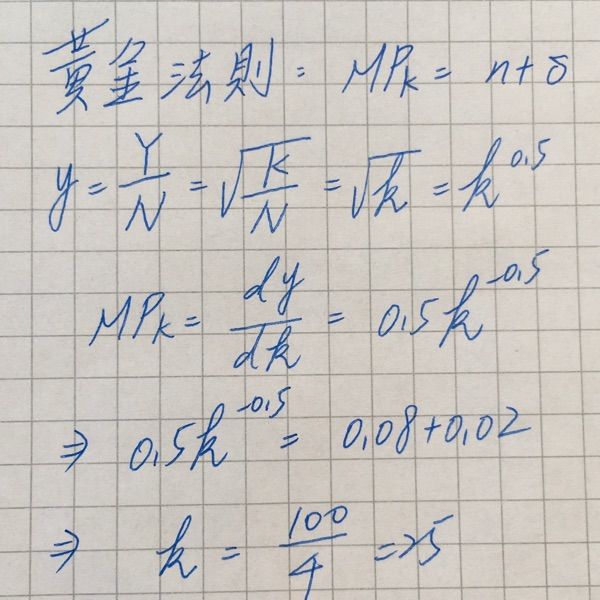 黃金法則: MPk = n+δ
y = Y/N = √(K/N) = √k = k^0.5
MPk = dy/dk = 0.5k^-0.5
⇒ 0.5k^-0.5 = 0.08+0.02
⇒ k = 100/4 = 25